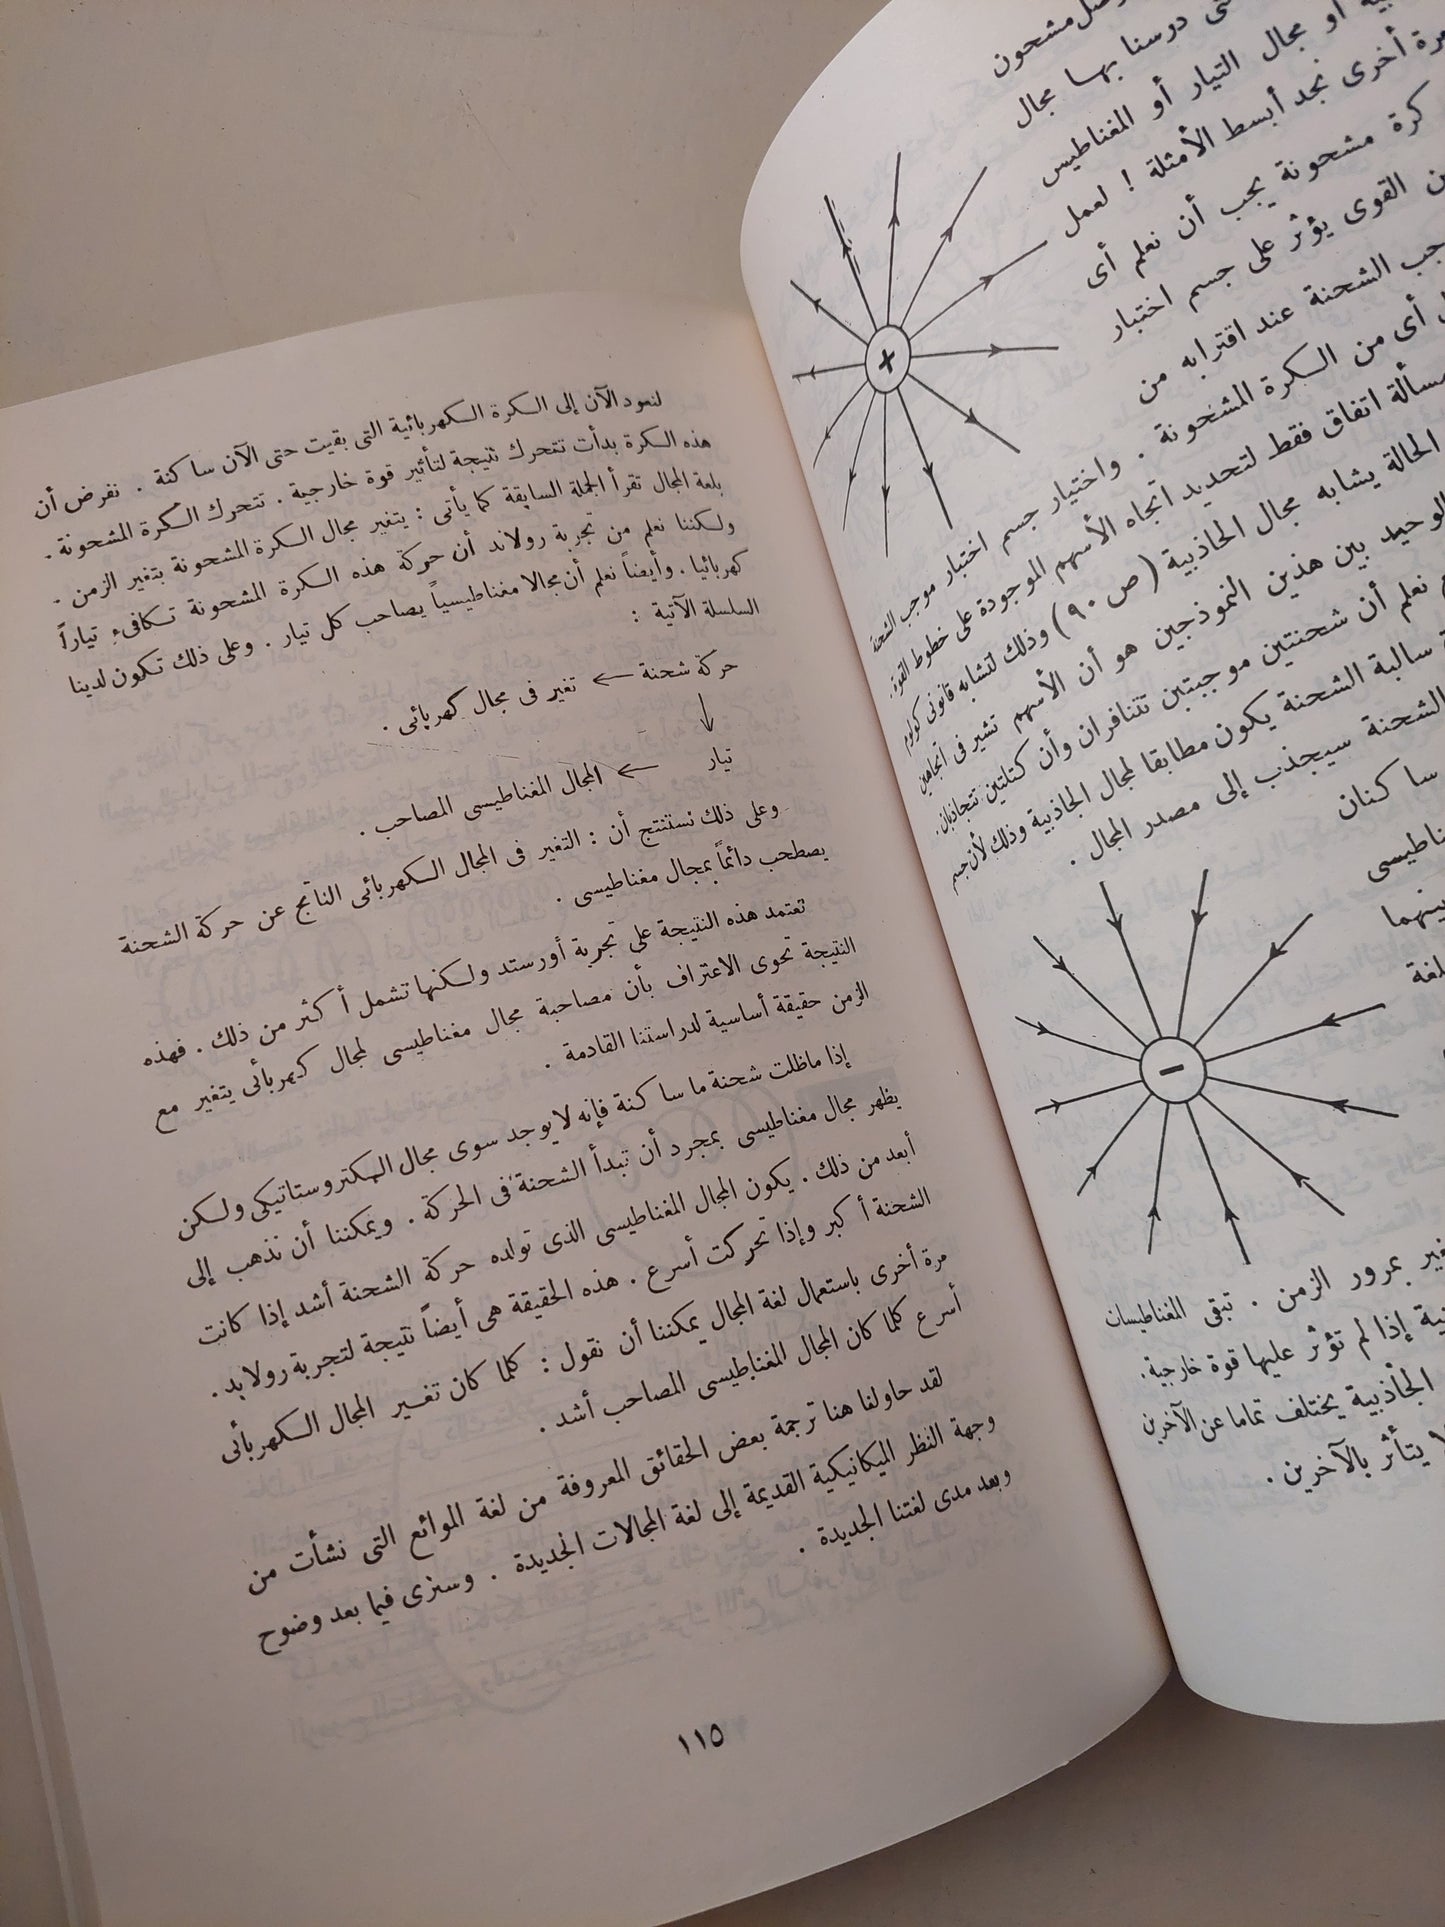 مشحون
درسنا بها مجال
أو مجال التيار أو المغناطيس
مرة أخرى نجد أبسط الأمثلة ! لعمل
كرة مشحونة يجب أن نعلم أى
القوى يؤثر على جسم اختبار
الشحنة عند اقترابه من
أى من الكرة المشحونة . واختيار جسم اختبار موجب الشحنة
مسألة اتفاق فقط لتحديد اتجاه الأسهم الموجودة على خطوط القوة .
الحالة يشابه مجال الجاذبية ( ص ٩٠ ) وذلك لتشابه قانونى كولوم
الوحيد بين هذين النموذجين هو أن الأسهم تشير فى اتجاهين
نعلم أن شحنتين موجبتين تتنافران وأن كتلتين تتجاذبان .
سالبة الشحنة يكون مطابقا لمجال الجاذبية وذلك لأن جسم
الشحنة سيجذب إلى مصدر المجال .
+
ساكنان
بينهما
لغة
−
بمرور الزمن . تبقى المغناطيسات
إذا لم تؤثر عليها قوة خارجية .
الجاذبية يختلف تماما عن الآخرين
يتأثر بالآخرين .
لنعود الآن إلى الكرة الكهربائية التى بقيت حتى الآن ساكنة . نفرض أن
هذه الكرة بدأت تتحرك نتيجة لتأثير قوة خارجية . تتحرك الكرة المشحونة .
بلغة المجال تقرأ الجملة السابقة كما يأتى : يتغير مجال الكرة المشحونة بتغير الزمن .
ولكننا نعلم من تجربة رولاند أن حركة هذه الكرة المشحونة تكافىء تياراً
كهربائيا . وأيضاً نعلم أن مجالا مغناطيسياً يصاحب كل تيار . وعلى ذلك تكون لدينا
السلسلة الآتية :
حركة شحنة ← تغير فى مجال كهربائى .
↓
تيار ← المجال المغناطيسى المصاحب .
وعلى ذلك نستنتج أن : التغير فى المجال الكهربائى الناتج عن حركة الشحنة
يصطحب دائماً بمجال مغناطيسى .
تعتمد هذه النتيجة على تجربة أورستد ولكنها تشمل أكثر من ذلك . فهذه
النتيجة تحوى الاعتراف بأن مصاحبة مجال مغناطيسى لمجال كهربائى يتغير مع
الزمن حقيقة أساسية لدراستنا القادمة .
إذا ماظلت شحنة ما ساكنة فإنه لا يوجد سوى مجال الكتروستاتيكى ولكن
يظهر مجال مغناطيسى بمجرد أن تبدأ الشحنة فى الحركة . ويمكننا أن نذهب إلى
أبعد من ذلك . يكون المجال المغناطيسى الذى تولده حركة الشحنة أشد إذا كانت
الشحنة أكبر وإذا تحركت أسرع . هذه الحقيقة هى أيضاً نتيجة لتجربة رولاند .
مرة أخرى باستعمال لغة المجال يمكننا أن نقول : كلما كان تغير المجال الكهربائى
أسرع كلما كان المجال المغناطيسى المصاحب أشد .
لقد حاولنا هنا ترجمة بعض الحقائق المعروفة من لغة الموائع التى نشأت من
وجهة النظر الميكانيكية القديمة إلى لغة المجالات الجديدة . وسنرى فيما بعد وضوح
وبعد مدى لغتنا الجديدة .
١١٥